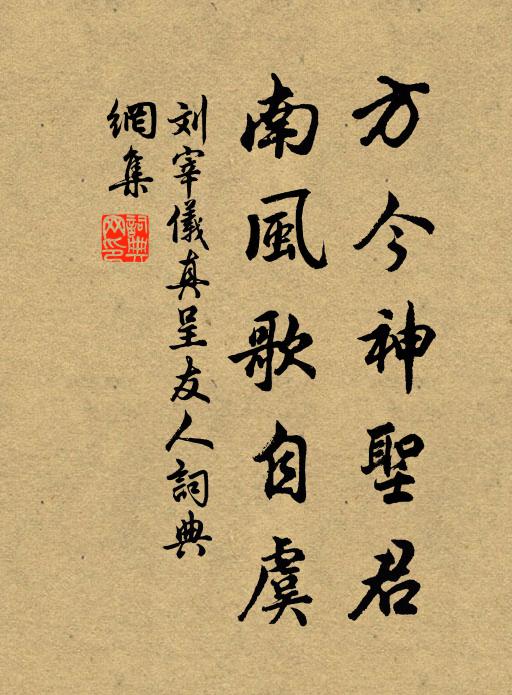 方今神聖君
南風歌自虞
刘宰儀真呈友人詞典
網集
詞典網印